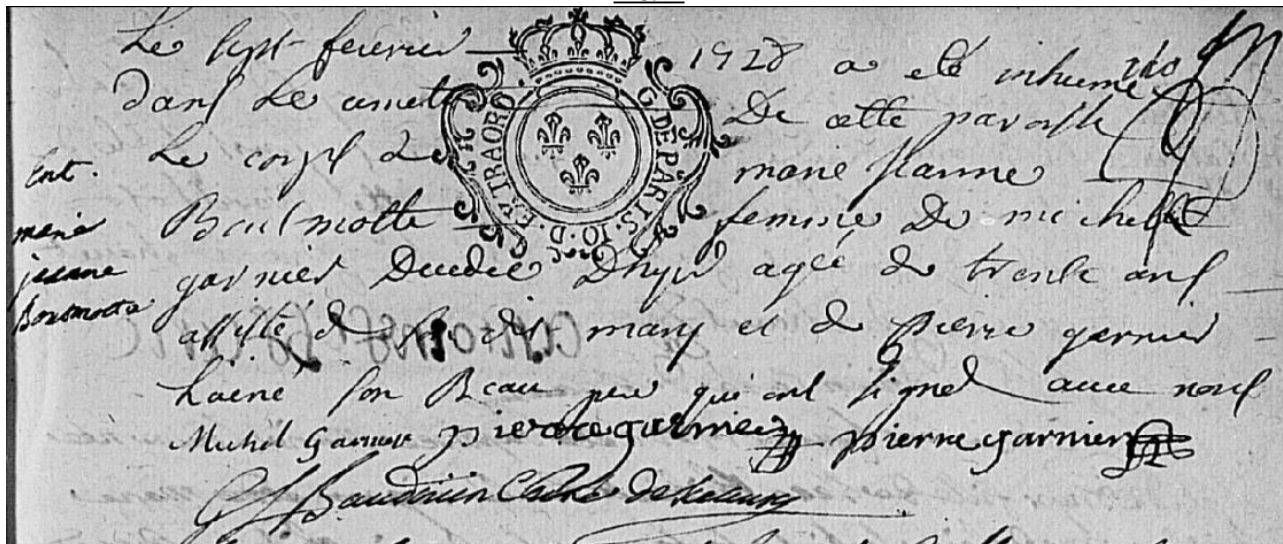 Le sept feuvrier 1728 a eté inhumé
dans le cimetie De cette paroisse
Le corps de marie Jeanne
Boulmotte femme De michelle
garnier Decedée D'hyer agée de trente ans
assisté de mary et de pierre garnier
Lainé son Beau pere qui ont signé avec nous
Michel Garnier pierre garnier pierre garnier
Baudouin
Ent.
marie
jeanne
Boumotte
G. DE PARIS. 10. D. EXTRAORD.